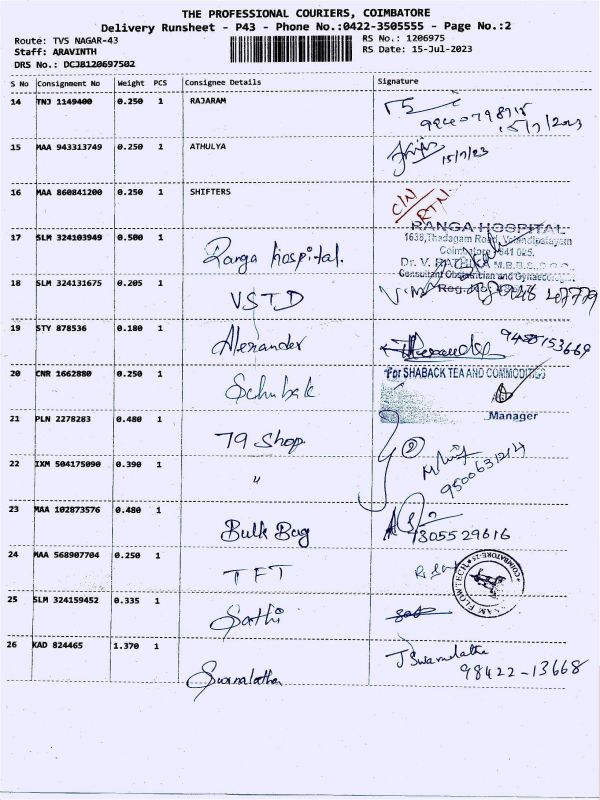 THE PROFESSIONAL COURIERS, COIMBATORE
Delivery Runsheet - P43 - Phone No.:0422-3505555 - Page No.:2
Route: TVS NAGAR-43 RS No.: 1206975
Staff: ARAVINTH RS Date: 15-Jul-2023
DRS No.: DCJB120697502
S No Consignment No Weight PCS Consignee Details Signature
14 TNJ 1149400 0.250 1 RAJARAM
15/7/2023
15 MAA 943313749 0.250 1 ATHULYA 15/7/23
16 MAA 860841200 0.250 1 SHIFTERS C/N RTN
RANGA HOSPITAL
1638, Thadagam Road, Velandipalayam
17 SLM 324103949 0.500 1 Ranga hospital. Coimbatore 641 025.
Dr. V. M.B.B.S.,
Consultant Obstetrician and Gynaec
18 SLM 324131675 0.205 1 VSTD Reg. No.
19 STY 878536 0.180 1 Alexander
20 CNR 1662880 0.250 1 Schubak For SHABACK TEA AND COMMODITIES
Manager
21 PLN 2278283 0.480 1 T9 Shop
22 IXM 504175090 0.390 1 "
23 MAA 102873576 0.480 1 Bulk Bag
24 MAA 568907704 0.250 1 TFT COIMBATORE FLOWTECH
25 SLM 324159452 0.335 1 Sathi
26 KAD 824465 1.370 1 Swarnalatha J Swarnalatha
98422-13668